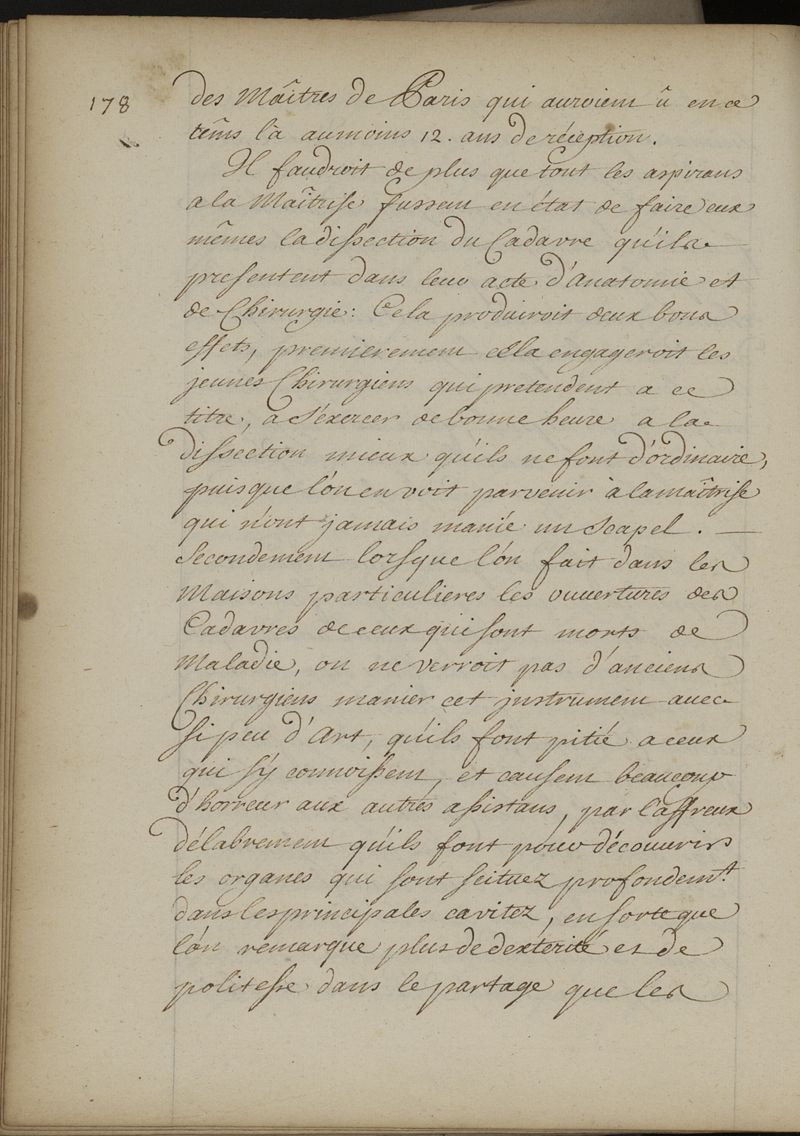 178
des Maîtres de Paris qui auroient û en ce
têms là au moins 12. ans de réception.
Il faudroit de plus que tout les aspirans
a la Maîtrise fussent en état de faire eux
mêmes la dissection du Cadavre qu'ils
presentent dans leur acte d'Anatomie et
de Chirurgie: Cela produiroit deux bons
effets, premierement cela engageroit les
jeunes Chirurgiens qui pretendent a ce
titre, a s'éxercer de bonne heure a la
dissection mieux qu'ils ne font d'ordinaire,
puisque l'on en voit parvenir à la maîtrise
qui n'ont jamais manié un Scapel. —
Secondement lorsque l'on fait dans les
Maisons particulieres les ouvertures des
Cadavres de ceux qui sont morts de
Maladie, on ne verroit pas d'anciens
Chirurgiens manier cet instrument avec
si peu d'Art, qu'ils font pitié a ceux
qui s'y connoissent, et causent beaucoup
d'horreur aux autres assistans, par l'affreux
délabrement qu'ils font pour découvrir
les organes qui sont scituez profondemt.
dans les principales cavitez, en sorte que
l'on remarque plus de dexterité et de
politesse dans le partage que les